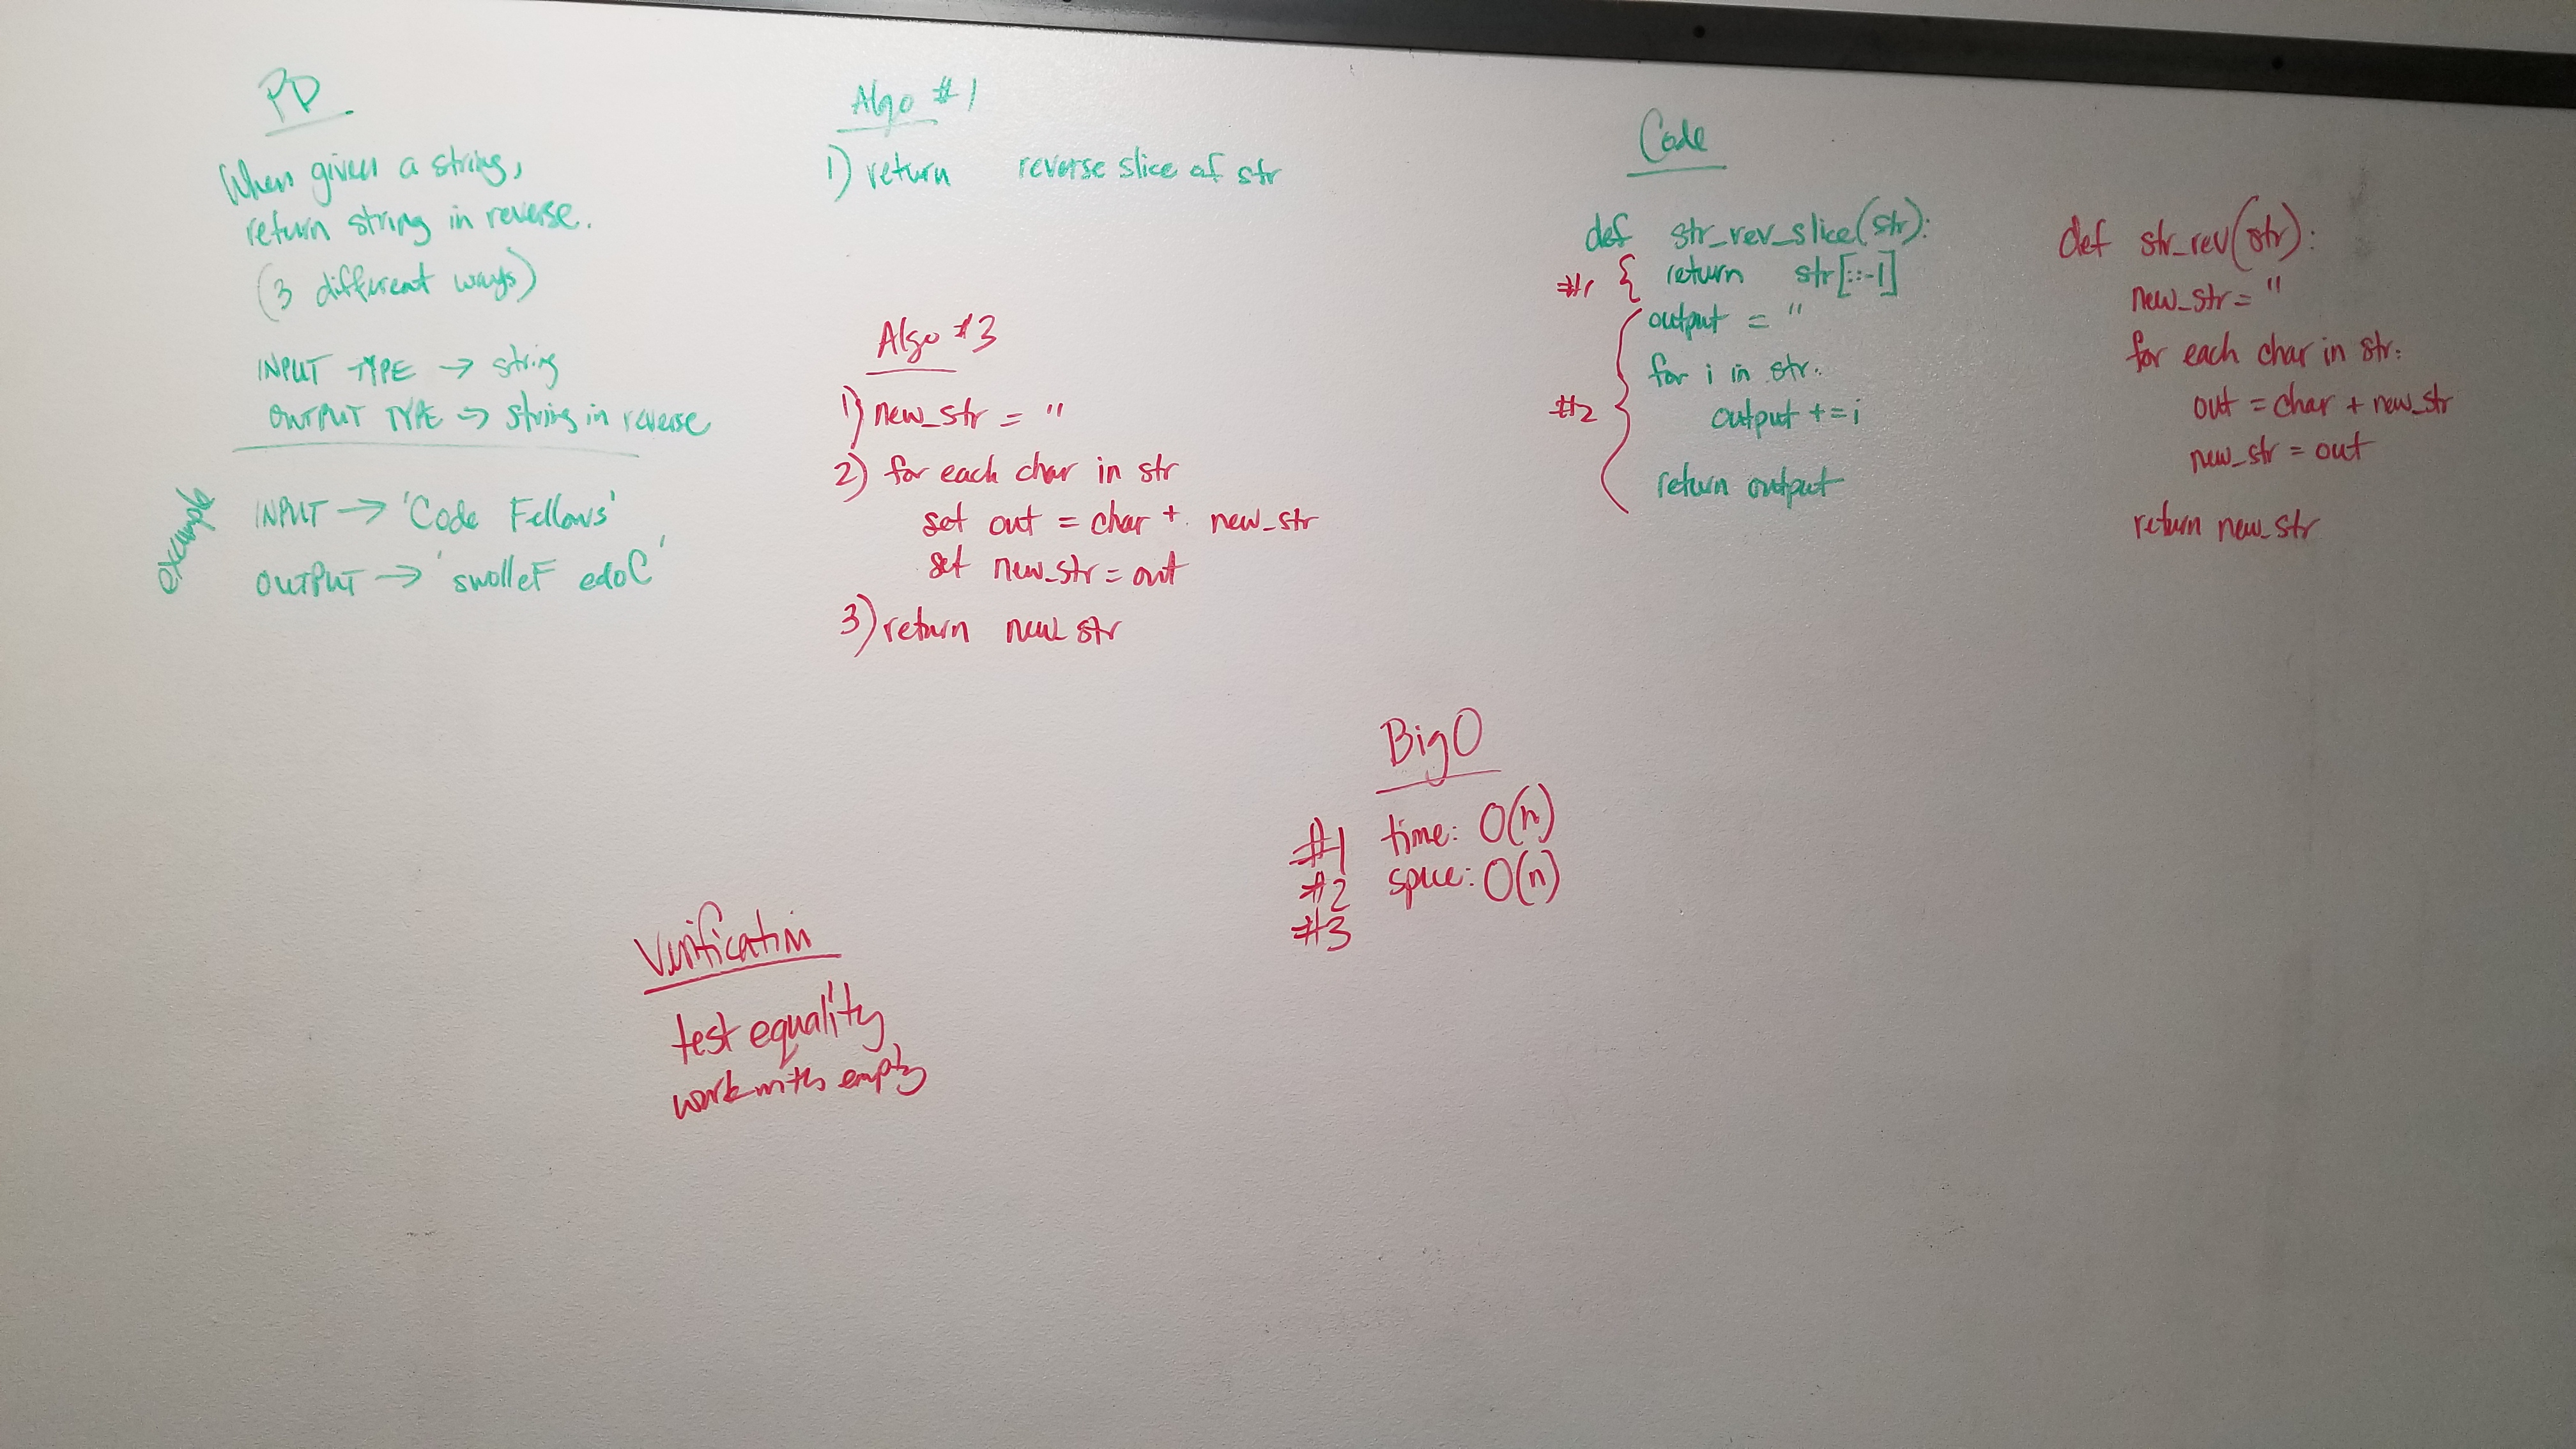 PD
When given a string,
return string in reverse.
(3 different ways)
INPUT TYPE → string
OUTPUT TYPE → string in reverse
example
INPUT → 'Code Fellows'
OUTPUT → 'swolleF edoC'
Algo #1
1) return reverse slice of str
Algo #3
1) new_str = ''
2) for each char in str
set out = char + new_str
set new_str = out
3) return new_str
Code
def str_rev_slice(str):
#1 { return str[::-1]
output = ''
for i in str:
#2 { output += i
return output
def str_rev(str):
new_str = ''
for each char in str:
out = char + new_str
new_str = out
return new_str
Big O
#1 time: O(n)
#2 space: O(n)
#3
Verification
test equality
work with empty